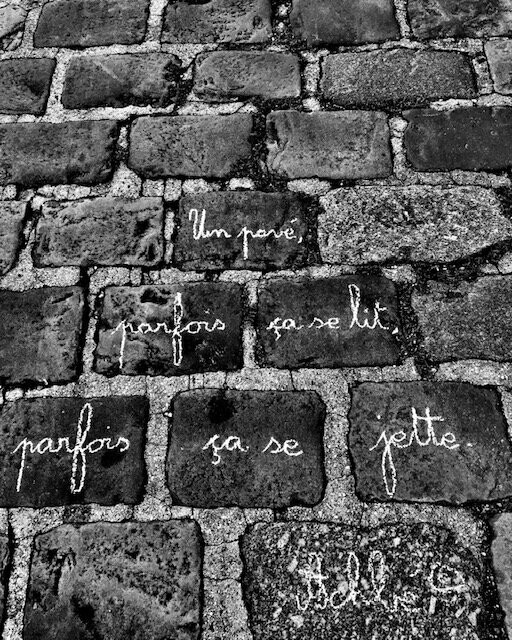 Un pavé,
parfois ça se lit,
parfois ça se jette.